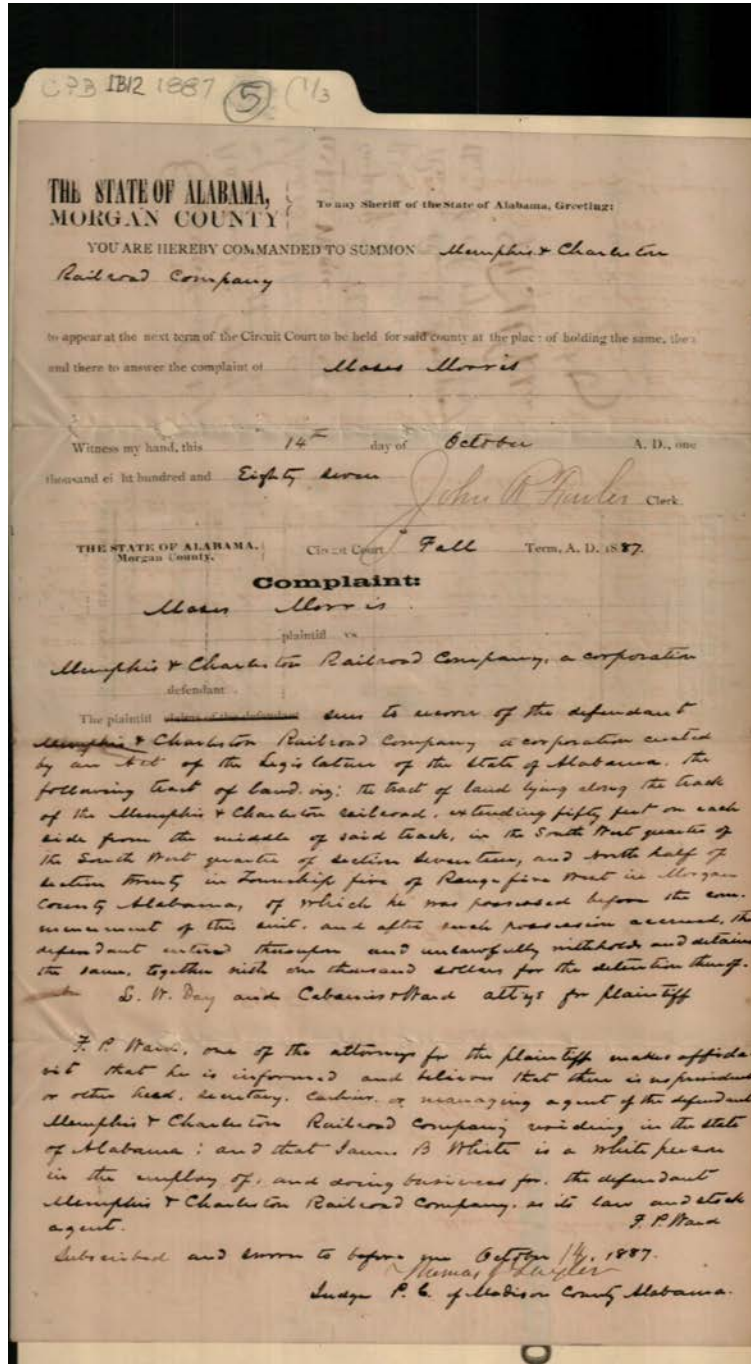 CPB IB12 1887 5 (1/3
THE STATE OF ALABAMA,
MORGAN COUNTY
To any Sheriff of the State of Alabama, Greeting:
YOU ARE HEREBY COMMANDED TO SUMMON Memphis & Charleston
Railroad Company
to appear at the next term of the Circuit Court to be held for said county at the place of holding the same, the
and there to answer the complaint of Moses Morris
Witness my hand, this 14th day of October A. D., one
thousand ei ht hundred and Eighty seven
John R Clerk.
THE STATE OF ALABAMA,
Morgan County.
Circuit Court Fall Term, A. D. 1887.
Complaint:
Moses Morris
plaintiff vs
Memphis & Charleston Railroad Company, a corporation
defendant .
The plaintiff claims of the defendant sues to recover of the defendant
Memphis & Charleston Railroad Company a corporation created
by an Act of the Legislature of the State of Alabama, the
following tract of land. viz; the tract of land lying along the track
of the Memphis & Charleston railroad, extending fifty feet on each
side from the middle of said track, in the South West quarter of
the South West quarter of section seventeen, and North half of
section twenty in Township five of Range five West in Morgan
County Alabama, of which he was possessed before the com-
mencement of this suit, and after such possession accrued, the
defendant entered thereupon and unlawfully withholds and detains
the same, together with one thousand dollars for the detention thereof.
L. W. Day and Cabaniss & Ward attys for plaintiff
F. P. Ward, one of the attorneys for the plaintiff makes affida
vit that he is informed and believes that there is no president
or other head, secretary, cashier, or managing agent of the defendant
Memphis & Charleston Railroad Company residing in the state
of Alabama; and that James B White is a white person
in the employ of, and doing business for, the defendant
Memphis & Charleston Railroad Company, as its law and stock
agent. F. P. Ward
Subscribed and sworn to before me October 14, 1887.
Thomas J Taylor
Judge P. C. of Madison County Alabama.